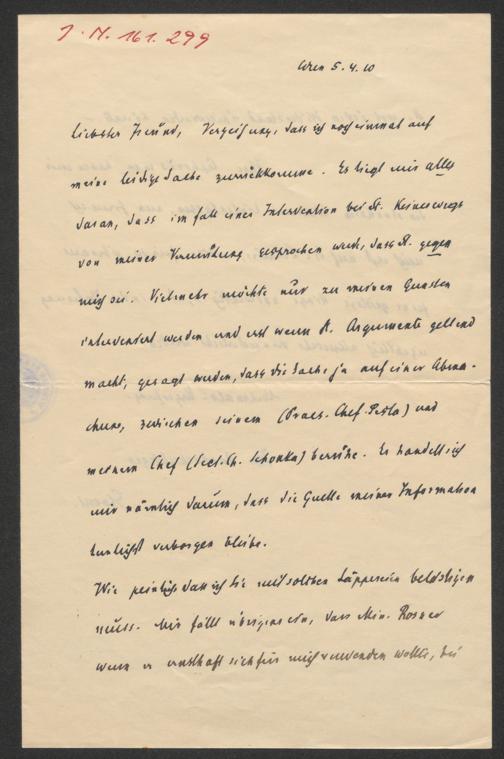 J. N. 161.299
Wien 5.4.10
Liebster Freund, Verzeihung, dass ich noch einmal auf
meine leidige Sache zurückkomme. Es liegt mir alles
daran, dass im Fall einer Intervention bei St. keineswegs
von meiner Vermuthung gesprochen werde, dass St. gegen
mich sei. Vielmehr möchte nur zu meinen Gunsten
interveniert werden und erst wenn St. Argumente geltend
macht, gesagt werden, dass die Sache ja auf einer Abma-
chung zwischen seinem (Praes. Chef) und
meinem Chef (Sect. Ch.) beruhe. Es handelt sich
mir nämlich darum, dass die Quelle meiner Information
tunlichst verborgen bleibe.
Wie peinlich dass ich Sie mit solchen Läppereien belästigen
muss. Mir fällt übrigens ein, dass Min. Rosner
wenn er ernsthaft sich für mich verwenden wollte, bei